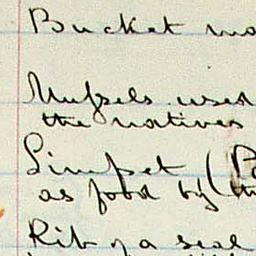 Bucket ma
Mussels used
the natives
Limpet (Pa
as food by the
Rib of a seal